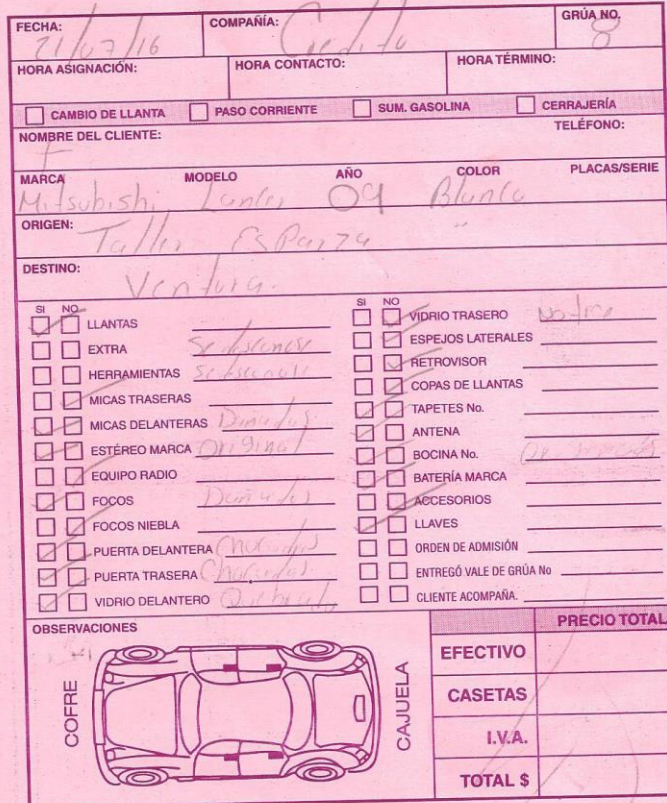 FECHA: COMPAÑÍA: GRÚA NO.
21/07/16 Credito 8
HORA ASIGNACIÓN: HORA CONTACTO: HORA TÉRMINO:
CAMBIO DE LLANTA PASO CORRIENTE SUM. GASOLINA CERRAJERÍA
NOMBRE DEL CLIENTE: TELÉFONO:
MARCA MODELO AÑO COLOR PLACAS/SERIE
Mitsubishi Lancer 09 Blanco
ORIGEN:
Taller Esparza
DESTINO:
Ventura.
SI NO
LLANTAS
EXTRA Se desconose
HERRAMIENTAS Se desconose
MICAS TRASERAS
MICAS DELANTERAS Dañadas
ESTÉREO MARCA Original
EQUIPO RADIO
FOCOS Dañados
FOCOS NIEBLA
PUERTA DELANTERA Chocadas
PUERTA TRASERA Chocadas
VIDRIO DELANTERO Quebrado
SI NO
VIDRIO TRASERO No trae
ESPEJOS LATERALES
RETROVISOR
COPAS DE LLANTAS
TAPETES No.
ANTENA
BOCINA No.
BATERÍA MARCA
ACCESORIOS
LLAVES
ORDEN DE ADMISIÓN
ENTREGÓ VALE DE GRÚA No
CLIENTE ACOMPAÑA.
OBSERVACIONES
COFRE
CAJUELA
PRECIO TOTAL
EFECTIVO
CASETAS
I.V.A.
TOTAL $